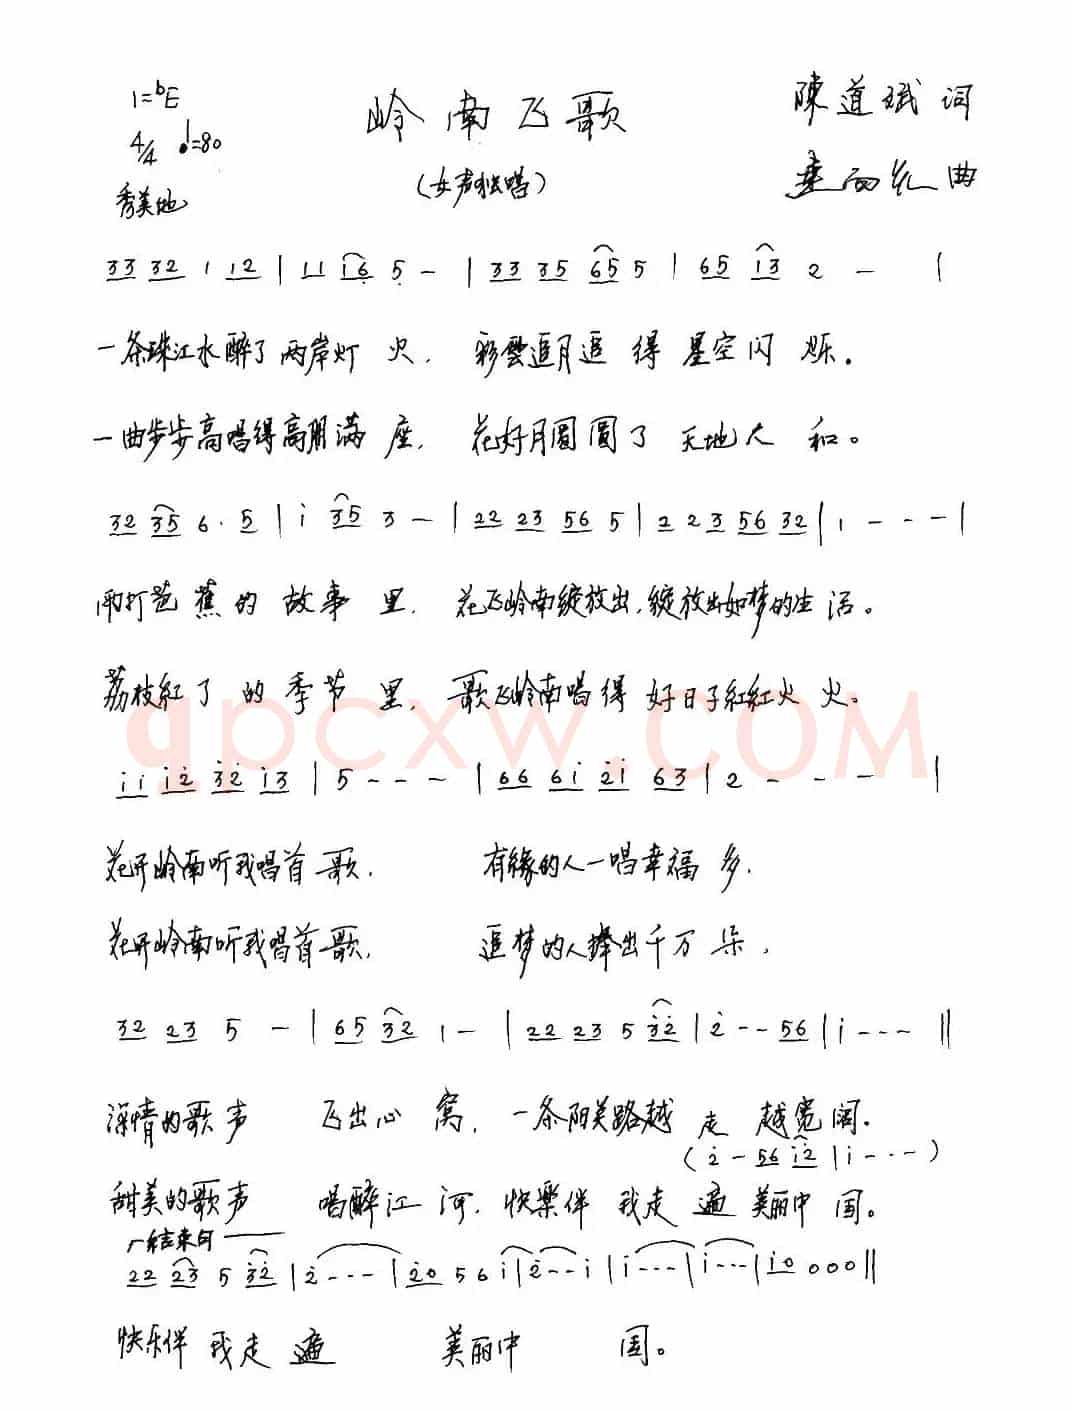 1=bE
岭南飞歌
陳道斌 词
4/4 ♩=80
(女声独唱)
曲
秀美地
33 32 1 12 | 11 16 5 - | 33 35 65 5 | 65 13 2 - |
一条珠江水醉了两岸灯火, 彩雲追月追得星空闪烁。
一曲步步高唱得高朋满座, 花好月圆圆了天地人和。
32 35 6. 5 | i 35 3 - | 22 23 56 5 | 2 2 3 56 32 | 1 - - - |
雨打芭蕉的故事里, 花飞岭南绽放出,绽放出如梦的生活。
荔枝紅了的季节里, 歌飞岭南唱得好日子紅紅火火。
qpcxw.com
ii i2 32 i3 | 5 - - - | 66 6i 2i 63 | 2 - - - |
花开岭南听我唱首歌, 有缘的人一唱幸福多,
花开岭南听我唱首歌, 追梦的人捧出千万朵,
32 23 5 - | 65 32 1 - | 22 23 5 32 | 2 - - 56 | i - - - ‖
深情的歌声飞出心窝, 一条阳关路越走越宽阔.
(2 - 56 i2 | i - - -)
甜美的歌声唱醉江河, 快樂伴我走遍美丽中国。
结束句
22 23 5 32 | 2 - - - | 20 5 6 i | 2 - - i | i - - - | i - - - | i0 0 0 0 ‖
快乐伴我走遍美丽中国。